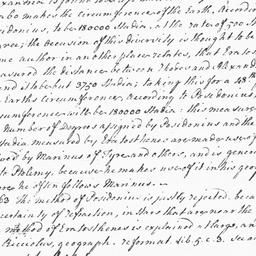 makes the circumference of the Earth, According
to be 180000 Stadia, at the rate of 500 St
the occasion of this diversity is thought to be
me author in another place relates, that Erato
asured the distance between Rhodes and Alexand
nd it to be but 3750 Stadia; taking this for a 48th
Earths circumference, According to Posidonius,
cumference will be 180000 Stadia: this measure
Number of Degrees assigned by Posidonius and the
tadia measured by Eratosthenes are made use of
owed by Marinus of Tyre and others, and is gener
to Ptolemy, because he makes use of it in his geog
re he often follows Marinus.
63 The method of Posidonius is justly rejected. beca
certainty of refraction, in Stars that are near the
method of Eratosthenes is explained at large, and
Ricciolus, geograph. reformat. Lib. 5. c. 3.